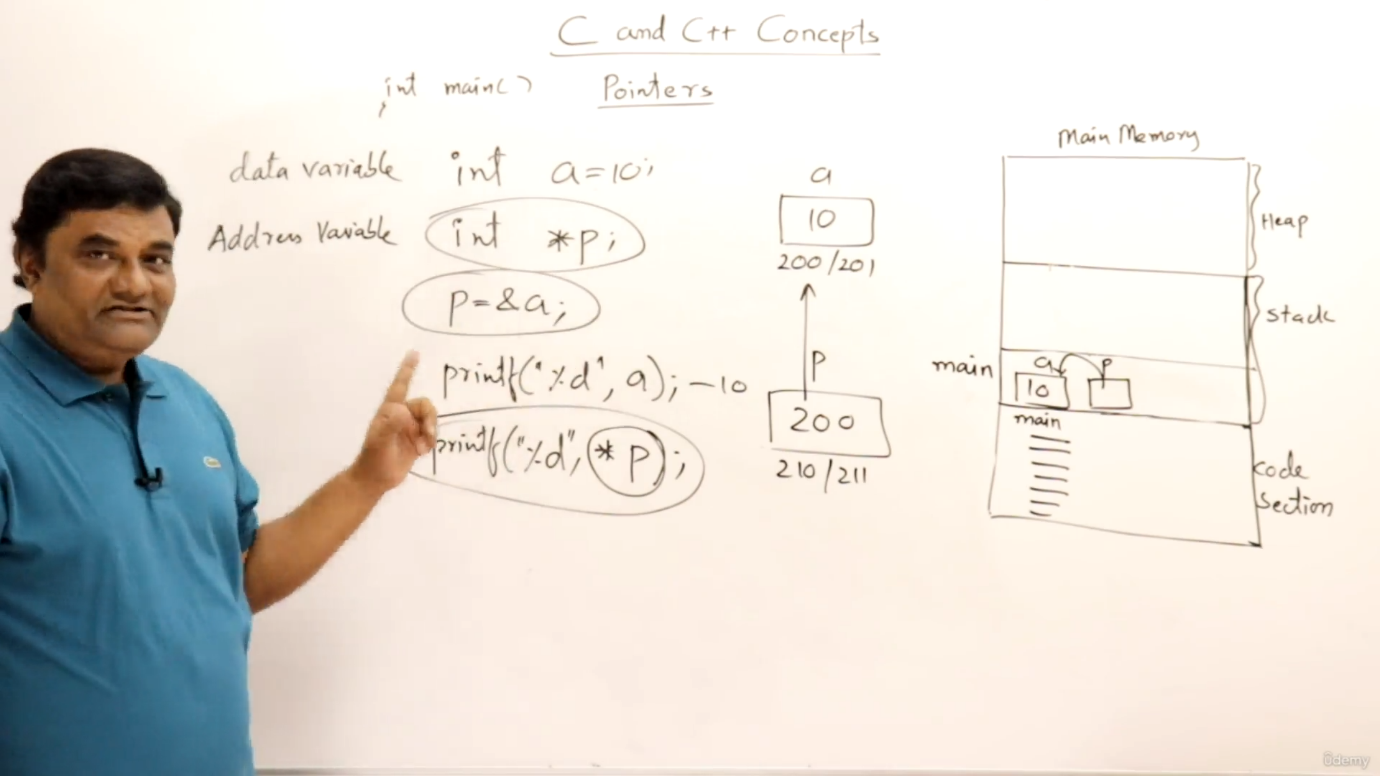 C and C++ Concepts
int main()
Pointers
data variable int a=10;
Address Variable int *p;
p=&a;
printf("%d", a); -10
printf("%d", *p);
a
10
200/201
p
200
210/211
Main Memory
Heap
Stack
main
a p
10
main
code
Section
ûdemy